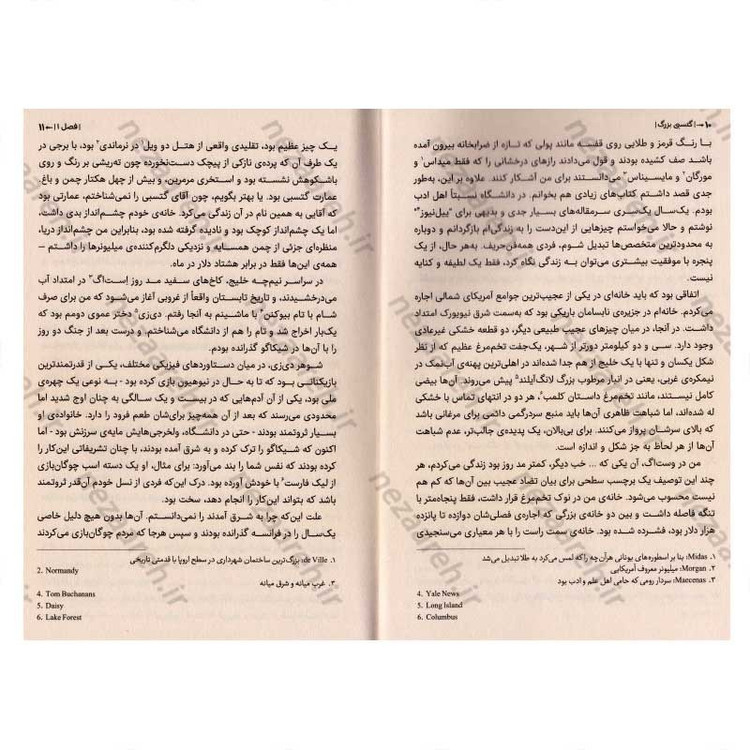 ۱۰ ← | گتسبی بزرگ |
با رنگ قرمز و طلایی روی قفسه مانند پولی که تازه از ضرابخانه بیرون آمده
باشد صف کشیده بودند و قول می‌دادند رازهای درخشانی را که فقط میداس۱ و
مورگان۲ و مایسیناس۳ می‌دانستند برای من آشکار کنند. علاوه بر این، به‌طور
جدی قصد داشتم کتاب‌های زیادی هم بخوانم. در دانشگاه نسبتاً اهل ادب
بودم. یک‌سال یک‌سری سرمقاله‌های بسیار جدی و بدیهی برای "ییل‌نیوز"۴
نوشتم و حالا می‌خواستم چیزهایی از این‌دست را به زندگی‌ام بازگردانم و دوباره
به محدودترین متخصص‌ها تبدیل شوم، فردی همه‌فن‌حریف. به‌هر حال، از یک
پنجره با موفقیت بیشتری می‌توان به زندگی نگاه کرد، فقط یک لطیفه و کنایه
نیست.
اتفاقی بود که باید خانه‌ای در یکی از عجیب‌ترین جوامع آمریکای شمالی اجاره
می‌کردم. خانه‌ام در جزیره‌ی نابسامان باریکی بود که به‌سمت شرق نیویورک امتداد
داشت. در آنجا، در میان چیزهای عجیب طبیعی دیگر، دو قطعه خشکی غیرعادی
وجود دارد. سی و دو کیلومتر دورتر از شهر، یک‌جفت تخم‌مرغ عظیم که از نظر
شکل یکسان و تنها با یک خلیج از هم جدا شده‌اند در اهلی‌ترین پهنه‌ی آب‌نمک در
نیمکره‌ی غربی، یعنی در انبار مرطوب بزرگ لانگ‌آیلند۵ پیش می‌روند. آن‌ها بیضی
کامل نیستند، مانند تخم‌مرغ داستان کلمب۶، هر دو در انتهای تماس با خشکی
له شده‌اند، اما شباهت ظاهری آن‌ها باید منبع سردرگمی دائمی برای مرغانی باشد
که بالای سرشان پرواز می‌کنند. برای بی‌بالان، یک پدیده‌ی جالب‌تر، عدم شباهت
آن‌ها از هر لحاظ به جز شکل و اندازه است.
من در وست‌اگ، آن یکی که ... خب دیگر، کمتر مد روز بود زندگی می‌کردم، هر
چند این توصیف یک برچسب سطحی برای بیان تضاد عجیب بین آن‌ها که کم هم
نیست محسوب می‌شود. خانه‌ی من در نوک تخم‌مرغ قرار داشت، فقط پنجاه‌متر با
تنگه فاصله داشت و بین دو خانه‌ی بزرگی که اجاره‌ی فصلی‌شان دوازده تا پانزده
هزار دلار بود، فشرده شده بود. خانه‌ی سمت راست را با هر معیاری می‌سنجیدی
۱. Midas: بنا بر اسطوره‌های یونانی هرآن چه را که لمس می‌کرد به طلا تبدیل می‌شد
۲. Morgan: میلیونر معروف آمریکایی
۳. Maecenas: سردار رومی که حامی اهل علم و ادب بود
4. Yale News
5. Long Island
6. Columbus
| فصل ۱ | ← ۱۱
یک چیز عظیم بود، تقلیدی واقعی از هتل دو ویل۱ در نرماندی۲ بود، با برجی در
یک طرف آن که پرده‌ی نازکی از پیچک دست‌نخورده چون ته‌ریشی بر رنگ و روی
باشکوهش نشسته بود و استخری مرمرین، و بیش از چهل هکتار چمن و باغ.
عمارت گتسبی بود. یا بهتر بگویم، چون آقای گتسبی را نمی‌شناختم، عمارتی بود
که آقایی به همین نام در آن زندگی می‌کرد. خانه‌ی خودم چشم‌انداز بدی داشت،
اما یک چشم‌انداز کوچک بود و نادیده گرفته شده بود، بنابراین من چشم‌انداز دریا،
منظره‌ای جزئی از چمن همسایه و نزدیکی دلگرم‌کننده‌ی میلیونرها را داشتم –
همه‌ی این‌ها فقط در برابر هشتاد دلار در ماه.
در سراسر نیم‌چه خلیج، کاخ‌های سفید مد روز است‌اگ۳ در امتداد آب
می‌درخشیدند، و تاریخ تابستان واقعاً از غروبی آغاز می‌شود که من برای صرف
شام با تام بیوکنن۴ با ماشینم به آنجا رفتم. دی‌زی۵ دختر عموی دومم بود که
یک‌بار اخراج شد و تام را هم از دانشگاه می‌شناختم. و درست بعد از جنگ دو روز
را با آن‌ها در شیکاگو گذرانده بودم.
شوهر دی‌زی، در میان دستاوردهای فیزیکی مختلف، یکی از قدرتمندترین
بازیکنانی بود که تا به حال در نیوهیون بازی کرده بود - به نوعی یک چهره‌ی
ملی بود، یکی از آن آدم‌هایی که در بیست و یک سالگی به چنان اوج شدید اما
محدودی می‌رسند که بعد از آن همه‌چیز برای‌شان طعم فرود را دارد. خانواده‌ی او
بسیار ثروتمند بودند - حتی در دانشگاه، ولخرجی‌هایش مایه‌ی سرزنش بود - اما
اکنون که شیکاگو را ترک کرده و به شرق آمده بودند، با چنان تشریفاتی این‌کار را
کرده بودند که نفس شما را بند می‌آورد: برای مثال، او یک دسته اسب چوگان‌بازی
از لیک فارست۶ با خودش آورده بود. درک این‌که فردی از نسل خودم آن‌قدر ثروتمند
باشد که بتواند این‌کار را انجام دهد، سخت بود.
علت این‌که چرا به شرق آمدند را نمی‌دانستم. آن‌ها بدون هیچ دلیل خاصی
یک‌سال را در فرانسه گذرانده بودند و سپس هرجا که مردم چوگان‌بازی می‌کردند
۱. de Ville: بزرگ‌ترین ساختمان شهرداری در سطح اروپا با قدمتی تاریخی
2. Normandy
۳. غرب میانه و شرق میانه
4. Tom Buchanans
5. Daisy
6. Lake Forest
nezareh.ir